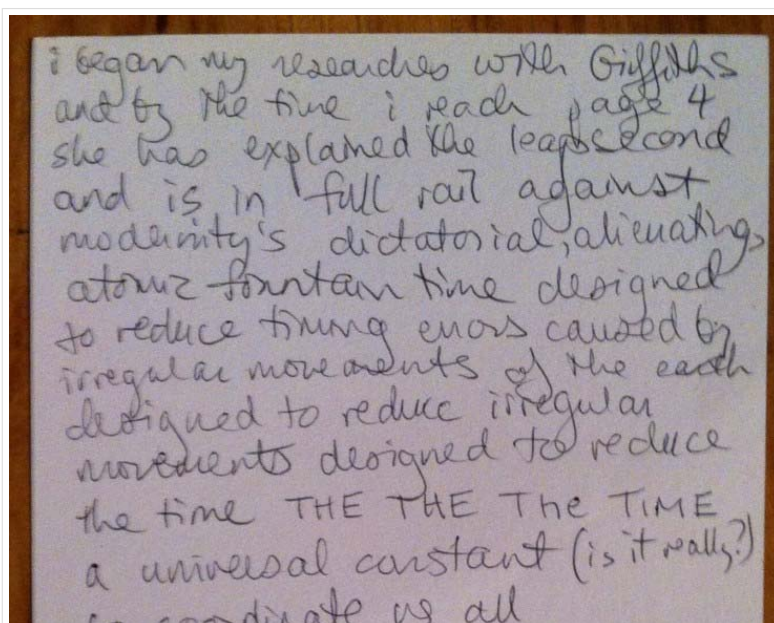 i began my researches with Griffiths
and by the time i reach page 4
she has explained the leapsecond
and is in full rail against
modernity's dictatorial, alienating,
atomic fountain time designed
to reduce timing errors caused by
irregular movements of the earth
designed to reduce irregular
movements designed to reduce
the time THE THE The TIME
a universal constant (is it really?)
to coordinate us all